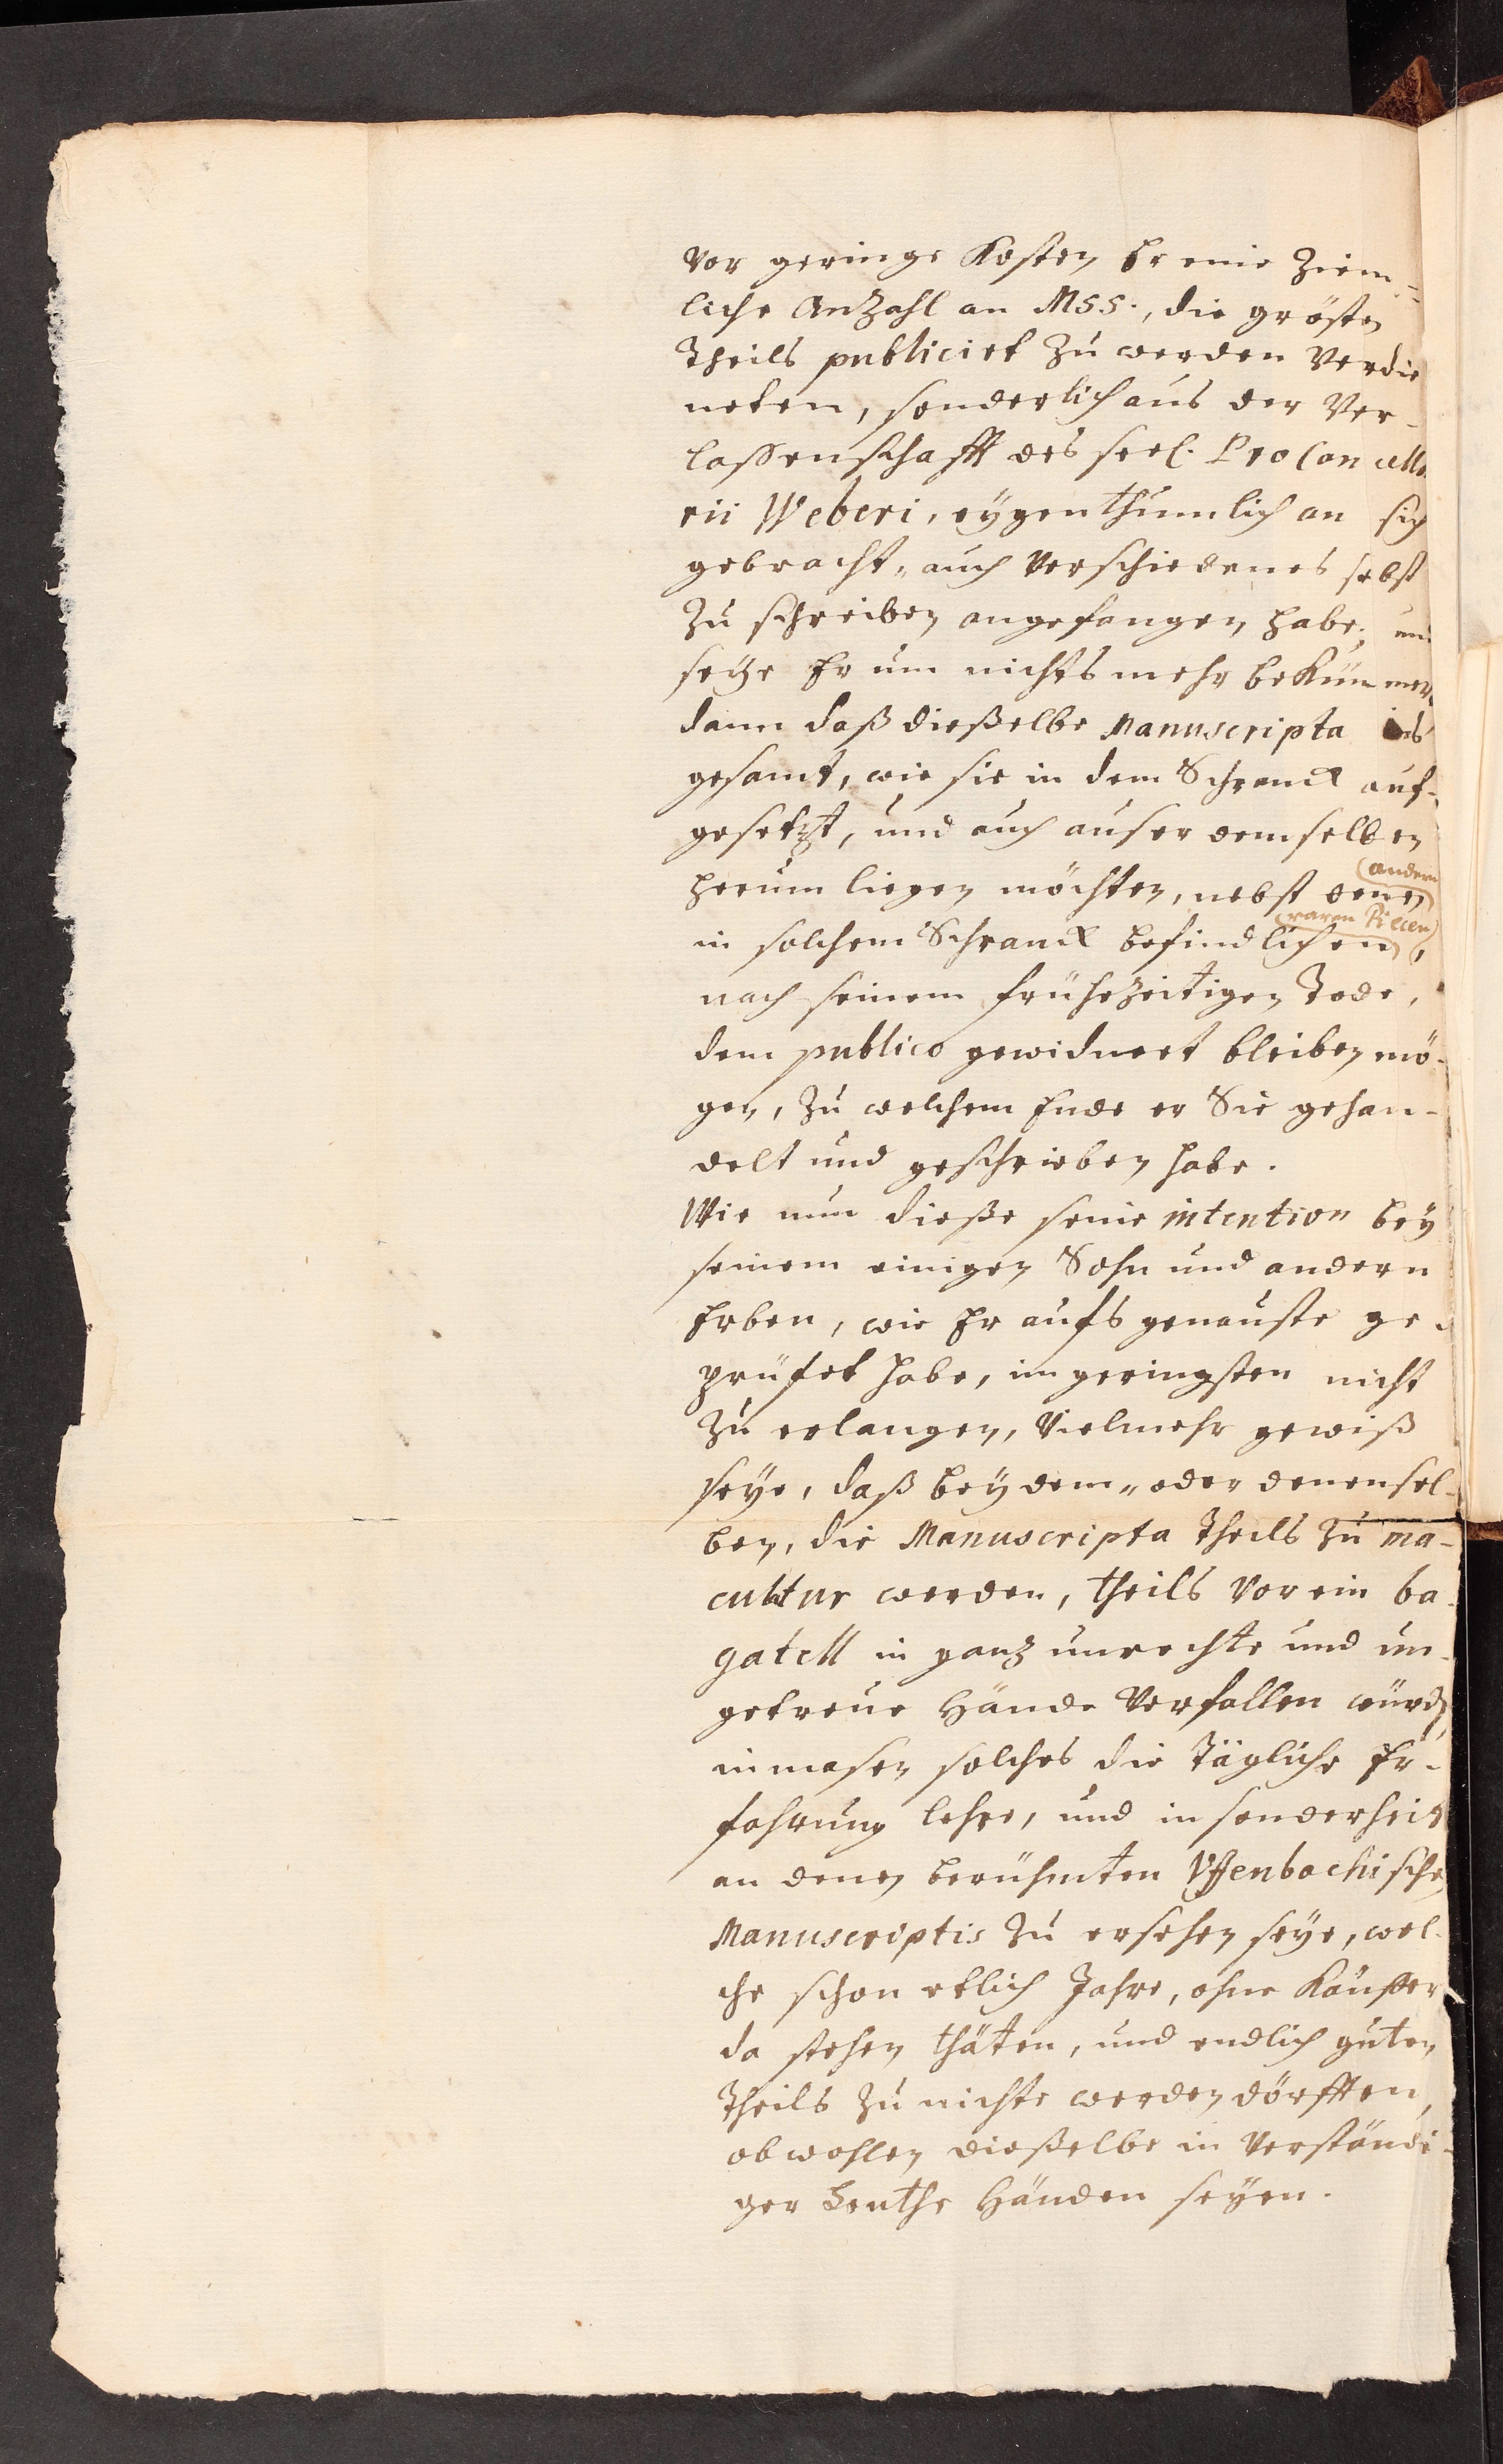 Vor geringe Kosten Er eine Ziem-
liche Anzahl an MSS., die grösten
Theils publicirt zu werden Verdie
neten, sonderlich aus der Ver-
lassenschafft des seel. ProCancella
rii Weberi, eygenthumlich an sich
gebracht, auch Verschiedenes selbst
zu schreiben angefangen habe, und
seye Er um nichts mehr beKümmert
dann daß dießelbe Manuscripta ins
gesamt, wie sie in dem Schranck auf-
gesetzt, und auch auser demselben
herum liegen möchten, nebst denen
(andern
in solchem Schranck befindlichen,
(raren Piecen)
nach seinem frühezeitigen Tode,
dem publico gewidmet bleiben mö-
gen, zu welchem Ende er Sie gehan-
delt und geschrieben habe.
Wie nun dieße seine intention bey
seinem einigen Sohn und andern
Erben, wie Er aufs genauste ge
prüfet habe, im geringsten nicht
zu erlangen, Vielmehr gewiß
seye, daß bey dem, oder denensel-
ben, die Manuscripta Theils zu ma-
cultur werden, theils Vor ein ba-
gatell in ganz unrechte und un-
getreue Hände Verfallen würden
inmasen solches die Tägliche Er-
fahrung lehre, und insonderheit
an denen berühmten Uffenbachischen
Manuscriptis zu ersehen seye, wel-
che schon etlich Jahre, ohne Käuffer
da stehen thäten, und endlich guten
Theils zu nichte werden dörfften,
obwohlen dießelbe in Verständi-
ger Leuthe Händen seyen.